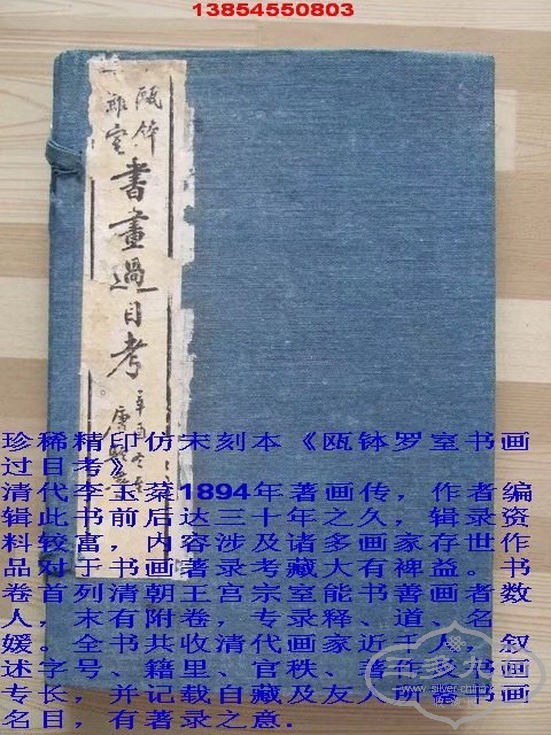 13854550803
室
書畫過目考
辛酉
珍稀精印仿宋刻本《瓯钵罗室书画
过目考》
清代李玉棻1894年著画传，作者编
辑此书前后达三十年之久，辑录资
料较富，内容涉及诸多画家存世作
品对于书画著录考藏大有裨益。书
卷首列清朝王宫宗室能书善画者数
人，末有附卷，专录释、道、名
媛。全书共收清代画家近千人，叙
述字号、籍里、官秩、著作及书画
专长，并记载自藏及友人所畜书画
名目，有著录之意.